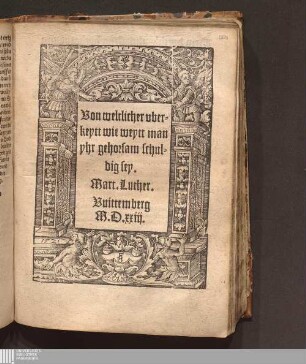 Von welltlicher uber-
keytt wie weytt man
yhr gehorsam schul-
dig sey.
Mart. Luther.
Vuittemberg
M.D.xxiij.